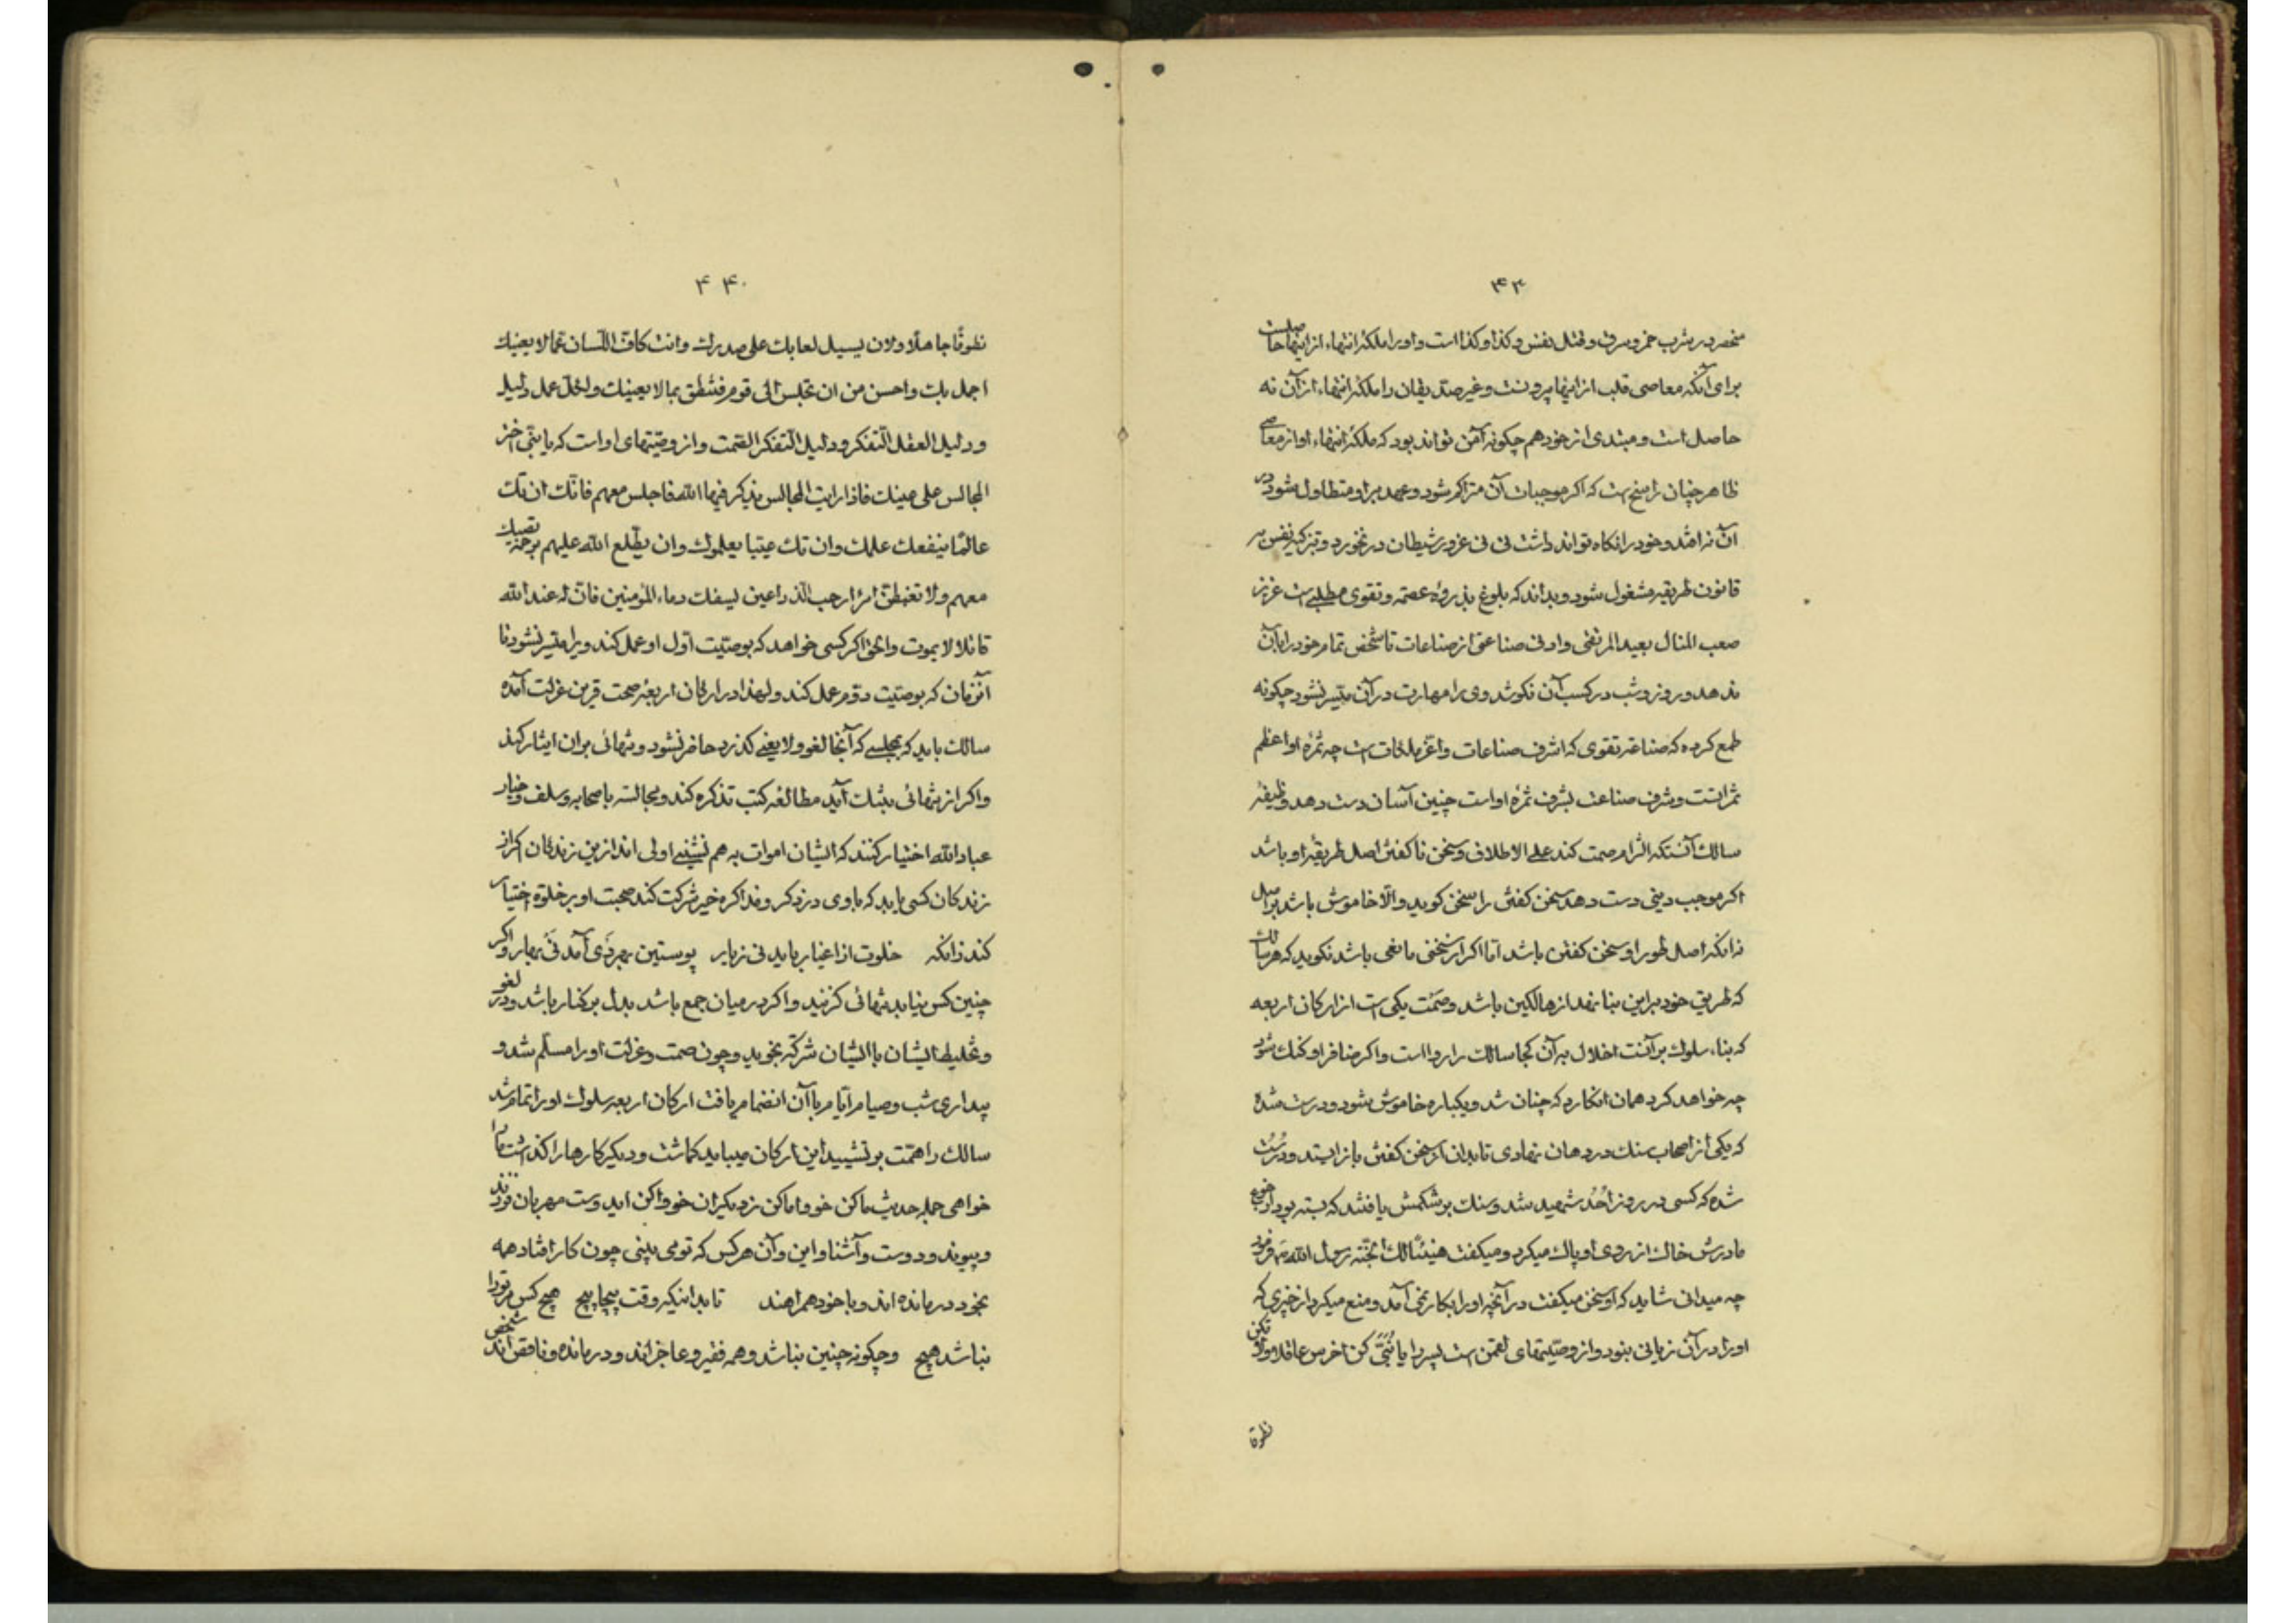 ۴۳
منحصر در شرب خمر و سرق و قتل نفس و کذا و کذا است و او را ملکهٔ انتهاء از اینها حاصلست
برای آنکه معاصی قلب از اینها بیرونست و غیر صدیقان را ملکهٔ انتهاء از آن نه
حاصل است و مبتدی از خود هم چکونه آمن تواند بود که ملکهٔ انتهاء او از معاصی
ظاهر چنان راسخ است که اکر موجبات آن متراکم شود و عهد بر او متطاول شود در
آن نرافتد و خود را نکاه تواند داشت نی نی غرور شیطان در نخورد و بتزکیهٔ نفس بر
قانون طریقه مشغول شود و بداند که بلوغ بذروهٔ عصمة و تقوی مطلبی است عزیز
صعب المنال بعید المرتقی و ادنی صناعتی از صناعات تا شخص تمام خود را بآن
ندهد و روز و شب در کسب آن نکوشد وی را مهارت در آن متیسر نشود چکونه
طمع کرده که صناعة تقوی که اشرف صناعات و اعز ملکات است چه ثمرهٔ او اعظم
ثمراتست و شرف صناعت بشرف ثمرهٔ او است چنین آسان دست دهد وظیفهٔ
سالک آنستکه الزام صمت کند علی الاطلاق و سخن ناکفتن اصل طریقهٔ او باشد
اکر موجب دینی دست دهد سخن کفتن را سخن کوید والّا خاموش باشد بر اصل
نه آنکه اصل طور او سخن کفتن باشد امّا اکر از سخنی مانعی باشد نکوید که هر سالک
که طریق خود بر این بنا نهد از هالکین باشد و صَمْت یکی است از ارکان اربعه
که بناء سلوک بر آنست اخلال به آن کجا سالک را روا است و اکر مثلا فرا او کنک شود
چه خواهد کرد همان انکارد که چنان شد و یکباره خاموش شود و درست شده
که یکی از اصحاب سنک در دهان نهادی تا بدان از سخن کفتن باز ایستد و درست
شده که کسی در روز اُحُد شهید شد و سنک بر شکمش یافتند که بسته بود از جوع
مادرش خاک از روی او پاک میکرد و میکفت هنیئًا لک الجنّة رسول الله ص فرمود
چه میدانی شاید که او سخن میکفت در آنچه او را بکار نمی آمد و منع میکرد از خیری که
او را در آن زیانی نبود و از وصیّتهای لقمن است پسر را یا بُنَیَّ کن اخرس عاقلا و لا تکن
نطوقا
۴۴
نطوقًا جاهلًا و لان یسیل لعابک علی صدرک و انت کافّ اللّسان عمّا لا یعنیک
اجمل بک و احسن من ان تجلس الی قوم فتنطق بما لا یعنیک و لکلّ عمل دلیل
و دلیل العقل التّفکر و دلیل التّفکر الصّمت و از وصیّتهای او است که یا بنیّ اختر
المجالس علی عینک فاذا رایت المجالس یذکر فیها الله فاجلس معهم فانّک ان تک
عالمًا ینفعک علمک و ان تک عییّا یعلموک و ان یطّلع الله علیهم برحمة تصیبک
معهم و لا تغبطنّ امرًا رحب الذراعین یسفک دماء المؤمنین فانّ له عند الله
قاتلا لا یموت و الحق اکر کسی خواهد که بوصیّت اوّل او عمل کند ویرا متیسر نشود تا
آنزمان که بوصیّت دوّم عمل کند و لهذا در ارکان اربعه صمت قرین عزلت آمده
سالک باید که بمجلسی که آنجا لغو و لا یعنی کذرد حاضر نشود و تنهائی بر آن ایثار کند
و اکر از تنهائی بتنک آید مطالعه کتب تذکره کند و مجالسه با صحابه و سلف و خیار
عباد الله اختیار کنند که ایشان اموات به هم نشینی اولی اند از این زندکان اکر از
زندکان کسی یابد که با وی در ذکر و مذاکره خیر شرکت کند صحبت او بر خلوة اختیار
کند زانکه خلوت از اغیار باید نی ز یار پوستین بهر دَی آمد نَی بهار و اکر
چنین کس نیابد تنهائی کزیند و اکر در میان جمع باشد بدل بر کنار باشد و در لغو
و تخلیط ایشان با ایشان شرکة نجوید و چون صمت و عزلت او را مسلّم شد و
بیداری شب و صیام ایّام با آن انضمام یافت ارکان اربعه سلوک او را تمام شد
سالک را همّت بر تشیید این ارکان میباید کماشت و دیکر کارها را کذاشت
خواهی جمله حدیث ما کن خو با ما کن ز دیکران خو وا کن ای دوست مهربان فرزند
و پیوند و دوست و آشنا و این و آن هر کس که تو می بینی چون کار افتاد همه
بخود درمانده اند و با خود همراهند تا بدانیکه وقت پیچاپیچ هیچ کس مر تورا
نباشد هیچ و چکونه چنین نباشد و همه فقیر و عاجزاند و درمانده و ناقص اند شخص